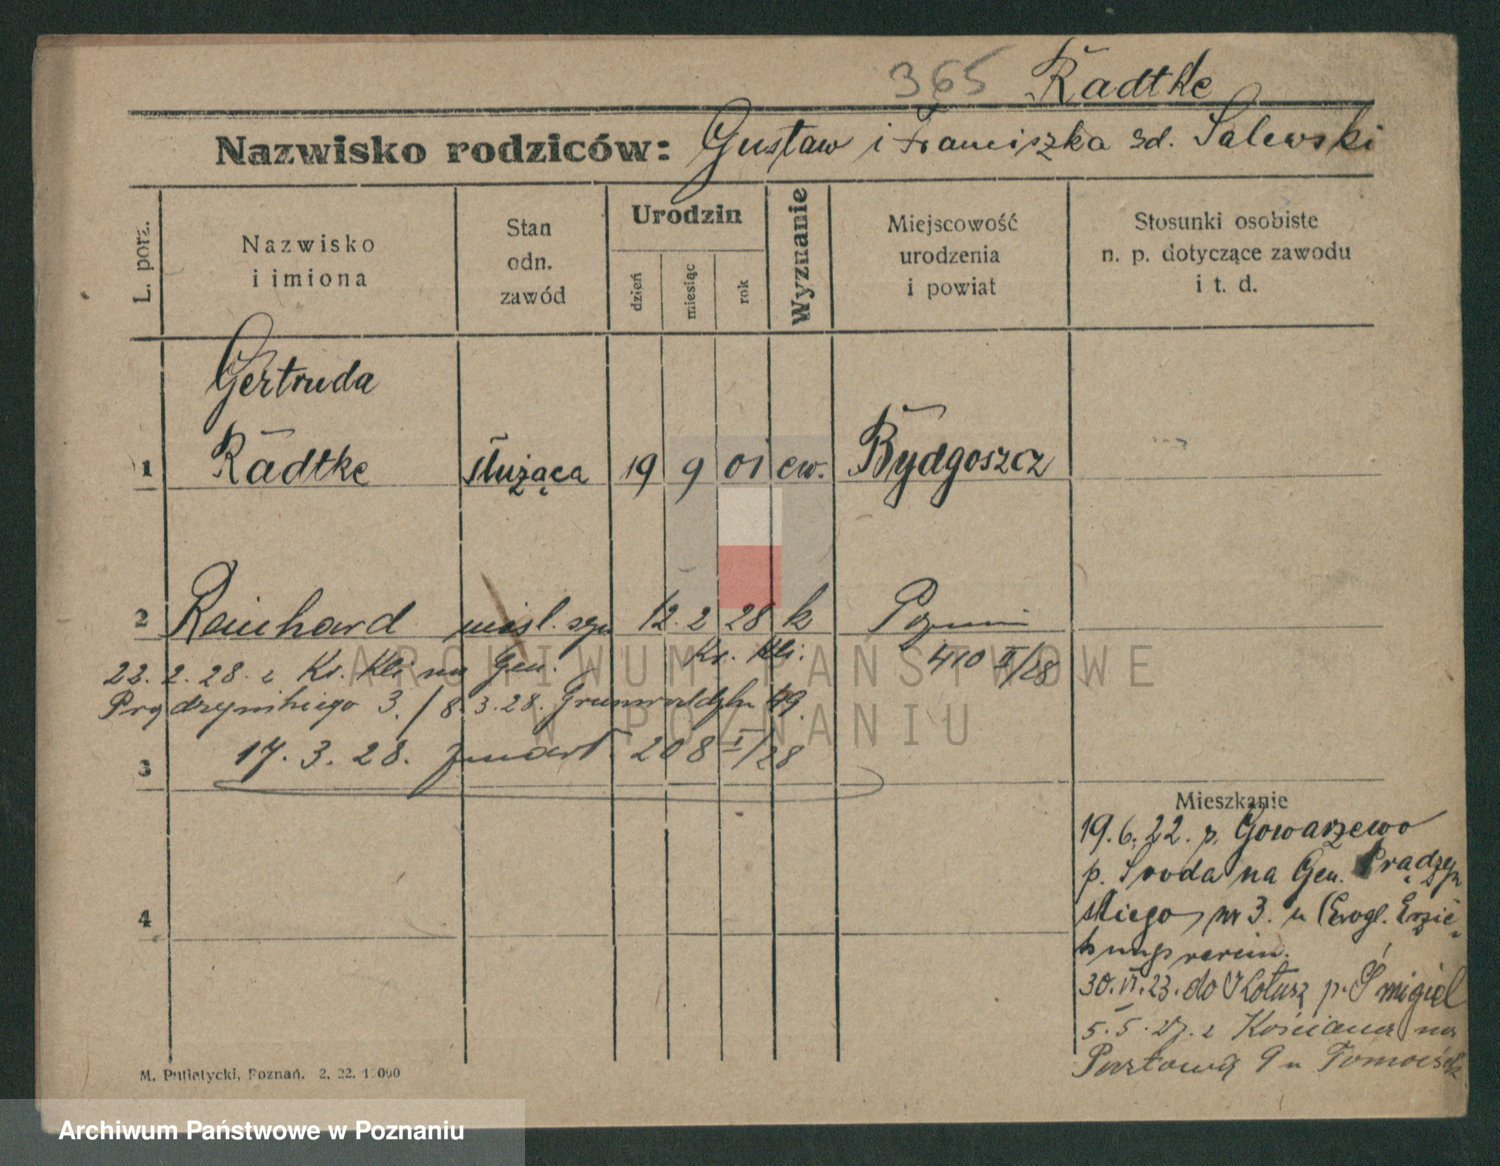 365 Radtke
Nazwisko rodziców: Gustaw i Franciszka zd. Salewski
L. porz.
Nazwisko
i imiona
Stan
odn.
zawód
Urodzin
dzień
miesiąc
rok
Wyznanie
Miejscowość
urodzenia
i powiat
Stosunki osobiste
n. p. dotyczące zawodu
i t. d.
Gertruda
1 Radtke służąca 19 9 01 ew. Bydgoszcz
2 Reinhard 12. 2 28 k Poznań
Kr. Kli. 410 II/28
22. 2. 28. z Kr. Kli na Gen.
Prądzyńskiego 3. / 8. 3. 28. Grunwaldzka 49.
3 17. 3. 28. zmarł. 208 I/28
Mieszkanie
19. 6. 22. p. Gowarzewo
p. Środa na Gen. Prądzyń
skiego nr 3. u Ewgl. Erzie-
hungsverein.
30. VI. 23. do Kotusz p. Śmigiel
5. 5. 27. z Kościana na
Pocztową 9 u
4
M. Putiatycki, Poznań. 2. 22. 1 000
ARCHIWUM PAŃSTWOWE
W POZNANIU
Archiwum Państwowe w Poznaniu